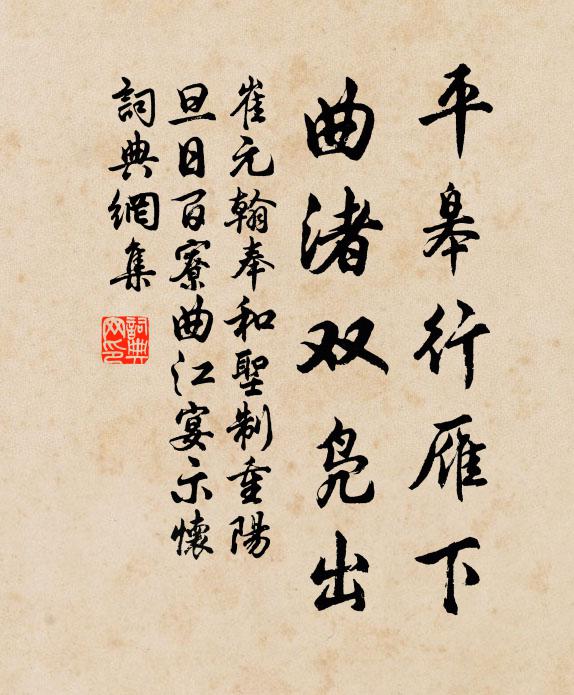 平皋行雁下
曲渚双凫出
崔元翰奉和聖制重陽
旦日百寮曲江宴示懷
詞典網集
詞典网印